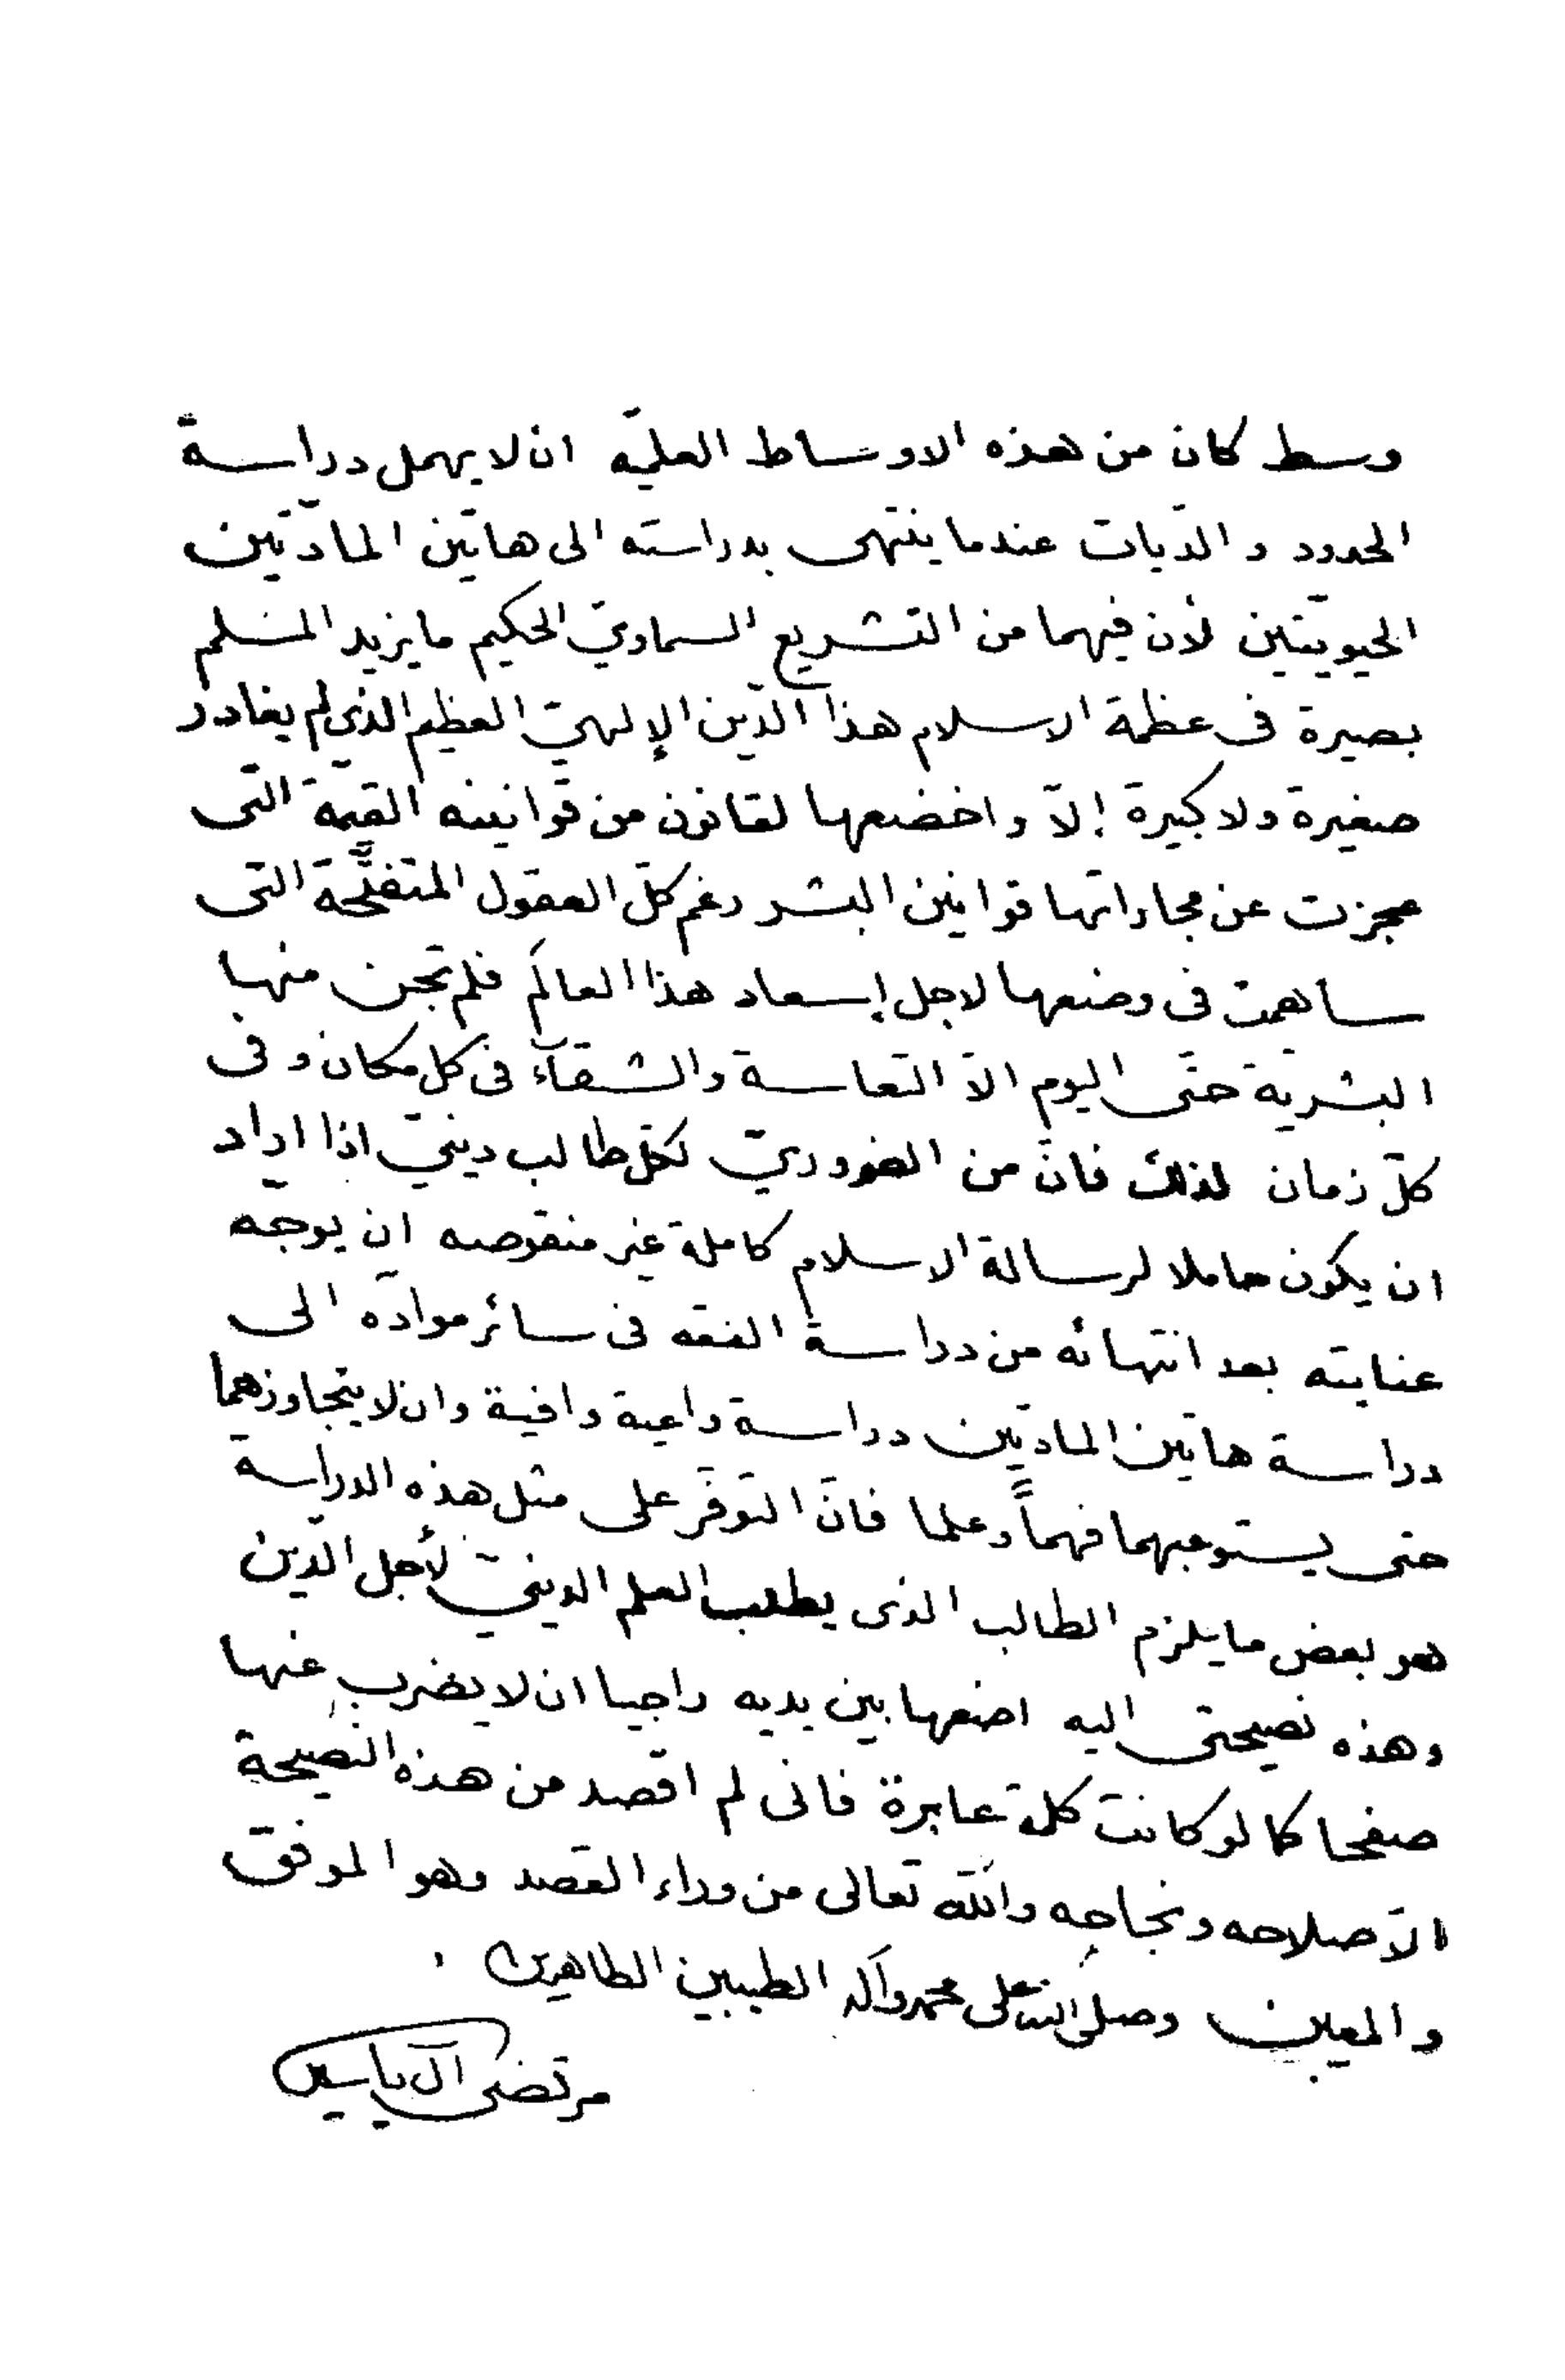 وسط كان من هذه الاوساط العلميّه ان لا يهمل دراسة
الحدود و الدّيات عندما ينتهى بدراسته الى هاتين المادّتين
الحيويّتين لأن فيهما من التشريع السماويّ الحكيم ما يزيد المسلم
بصيرة فى عظمة الاسلام هذا الدّين الإلهيّ العظيم الذي لم يغادر
صغيرة ولا كبيرة إلاّ واخضعها لقانون من قوانينه القيّمة التى
عجزت عن مجاراتها قوانين البشر رغم كلّ العقول المتفتّحة التى
ساهمت فى وضعها لاجل إسعاد هذا العالَم فلم تجن منها
البشريّة حتّى اليوم الاّ التعاسة والشقآء فى كل مكان وفى
كلّ زمان لذلك فانّ من الضروريّ لكلّ طالب دينيّ اذا اراد
ان يكون حاملا لرسالة الاسلام كاملة غير منقوصه ان يوجّه
عنايته بعد انتهائه من دراسة الفقه فى سائر موادّه الى
دراسة هاتين المادّتين دراسة واعية وافية وان لا يتجاوزهما
حتى يستوعبهما فهماً وعلما فانّ التوفّر على مثل هذه الدراسة
هو بعض ما يلزم الطالب الذى يطلب العلم الدينيّ لأجل الدّين
وهذه نصيحتى اليه اضعها بين يديه راجيا ان لا يضرب عنها
صفحا كما لو كانت كلمة عابرة فانى لم اقصد من هذه النصيحة
الاّ صلاحه ونجاحه والله تعالى من وراء القصد وهو الموفق
والمعين وصلّى الله على محمد وآله الطيبين الطاهرين .
مرتضى آل ياسين